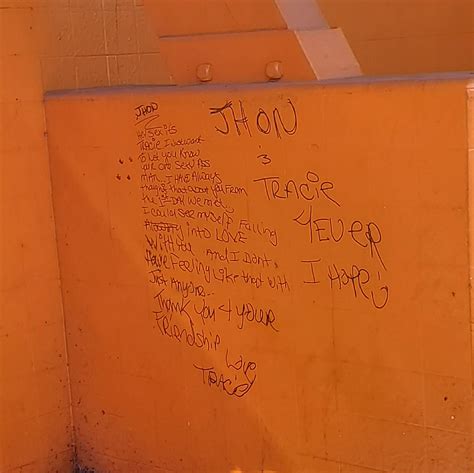 JHON
Hey sex it's
Tracie I wanna
to let you know
your one sexy Ass
man. I HAVE Always
thought that about you From
the 1st DAY we met
I could see myself Falling
into LOVE
With You And I Don't
Have Feeling like that with
Just Anyone..
Thank You 4 your
Friendship
Love
TRACIE
JHON
3
TRACIE
4EVER
I Hope